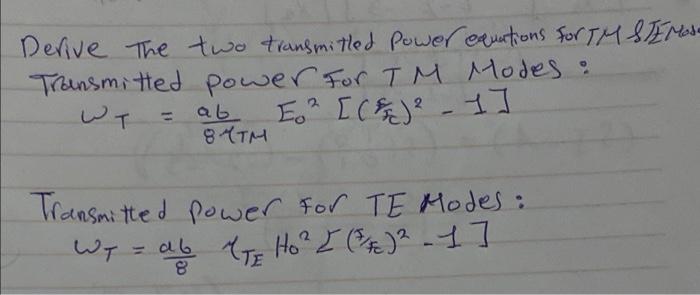 Derive The two transmitted Power equations for TM & TE Modes
Transmitted power For TM Modes :
W_T = ab/8η_TM E₀² [(f/fc)² - 1]
Transmitted Power For TE Modes :
W_T = ab/8 η_TE H₀² [(f/fc)² - 1]